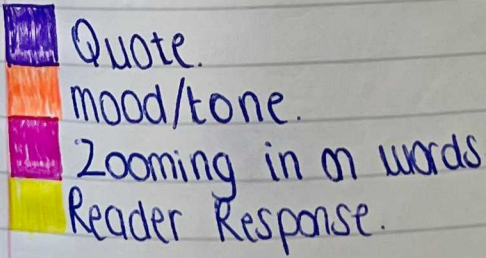 Quote.
mood/tone.
Zooming in on words
Reader Response.